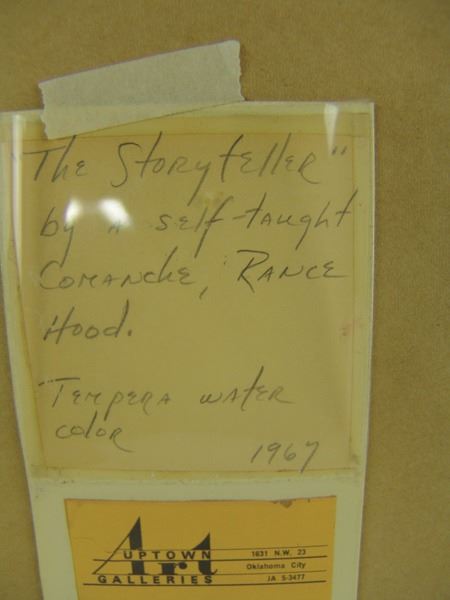 The Storyteller"
by a self-taught
Comanche, Rance
Hood.
Tempera water
color
1967
Art
UPTOWN
GALLERIES
1631 N.W. 23
Oklahoma City
JA 5-3477